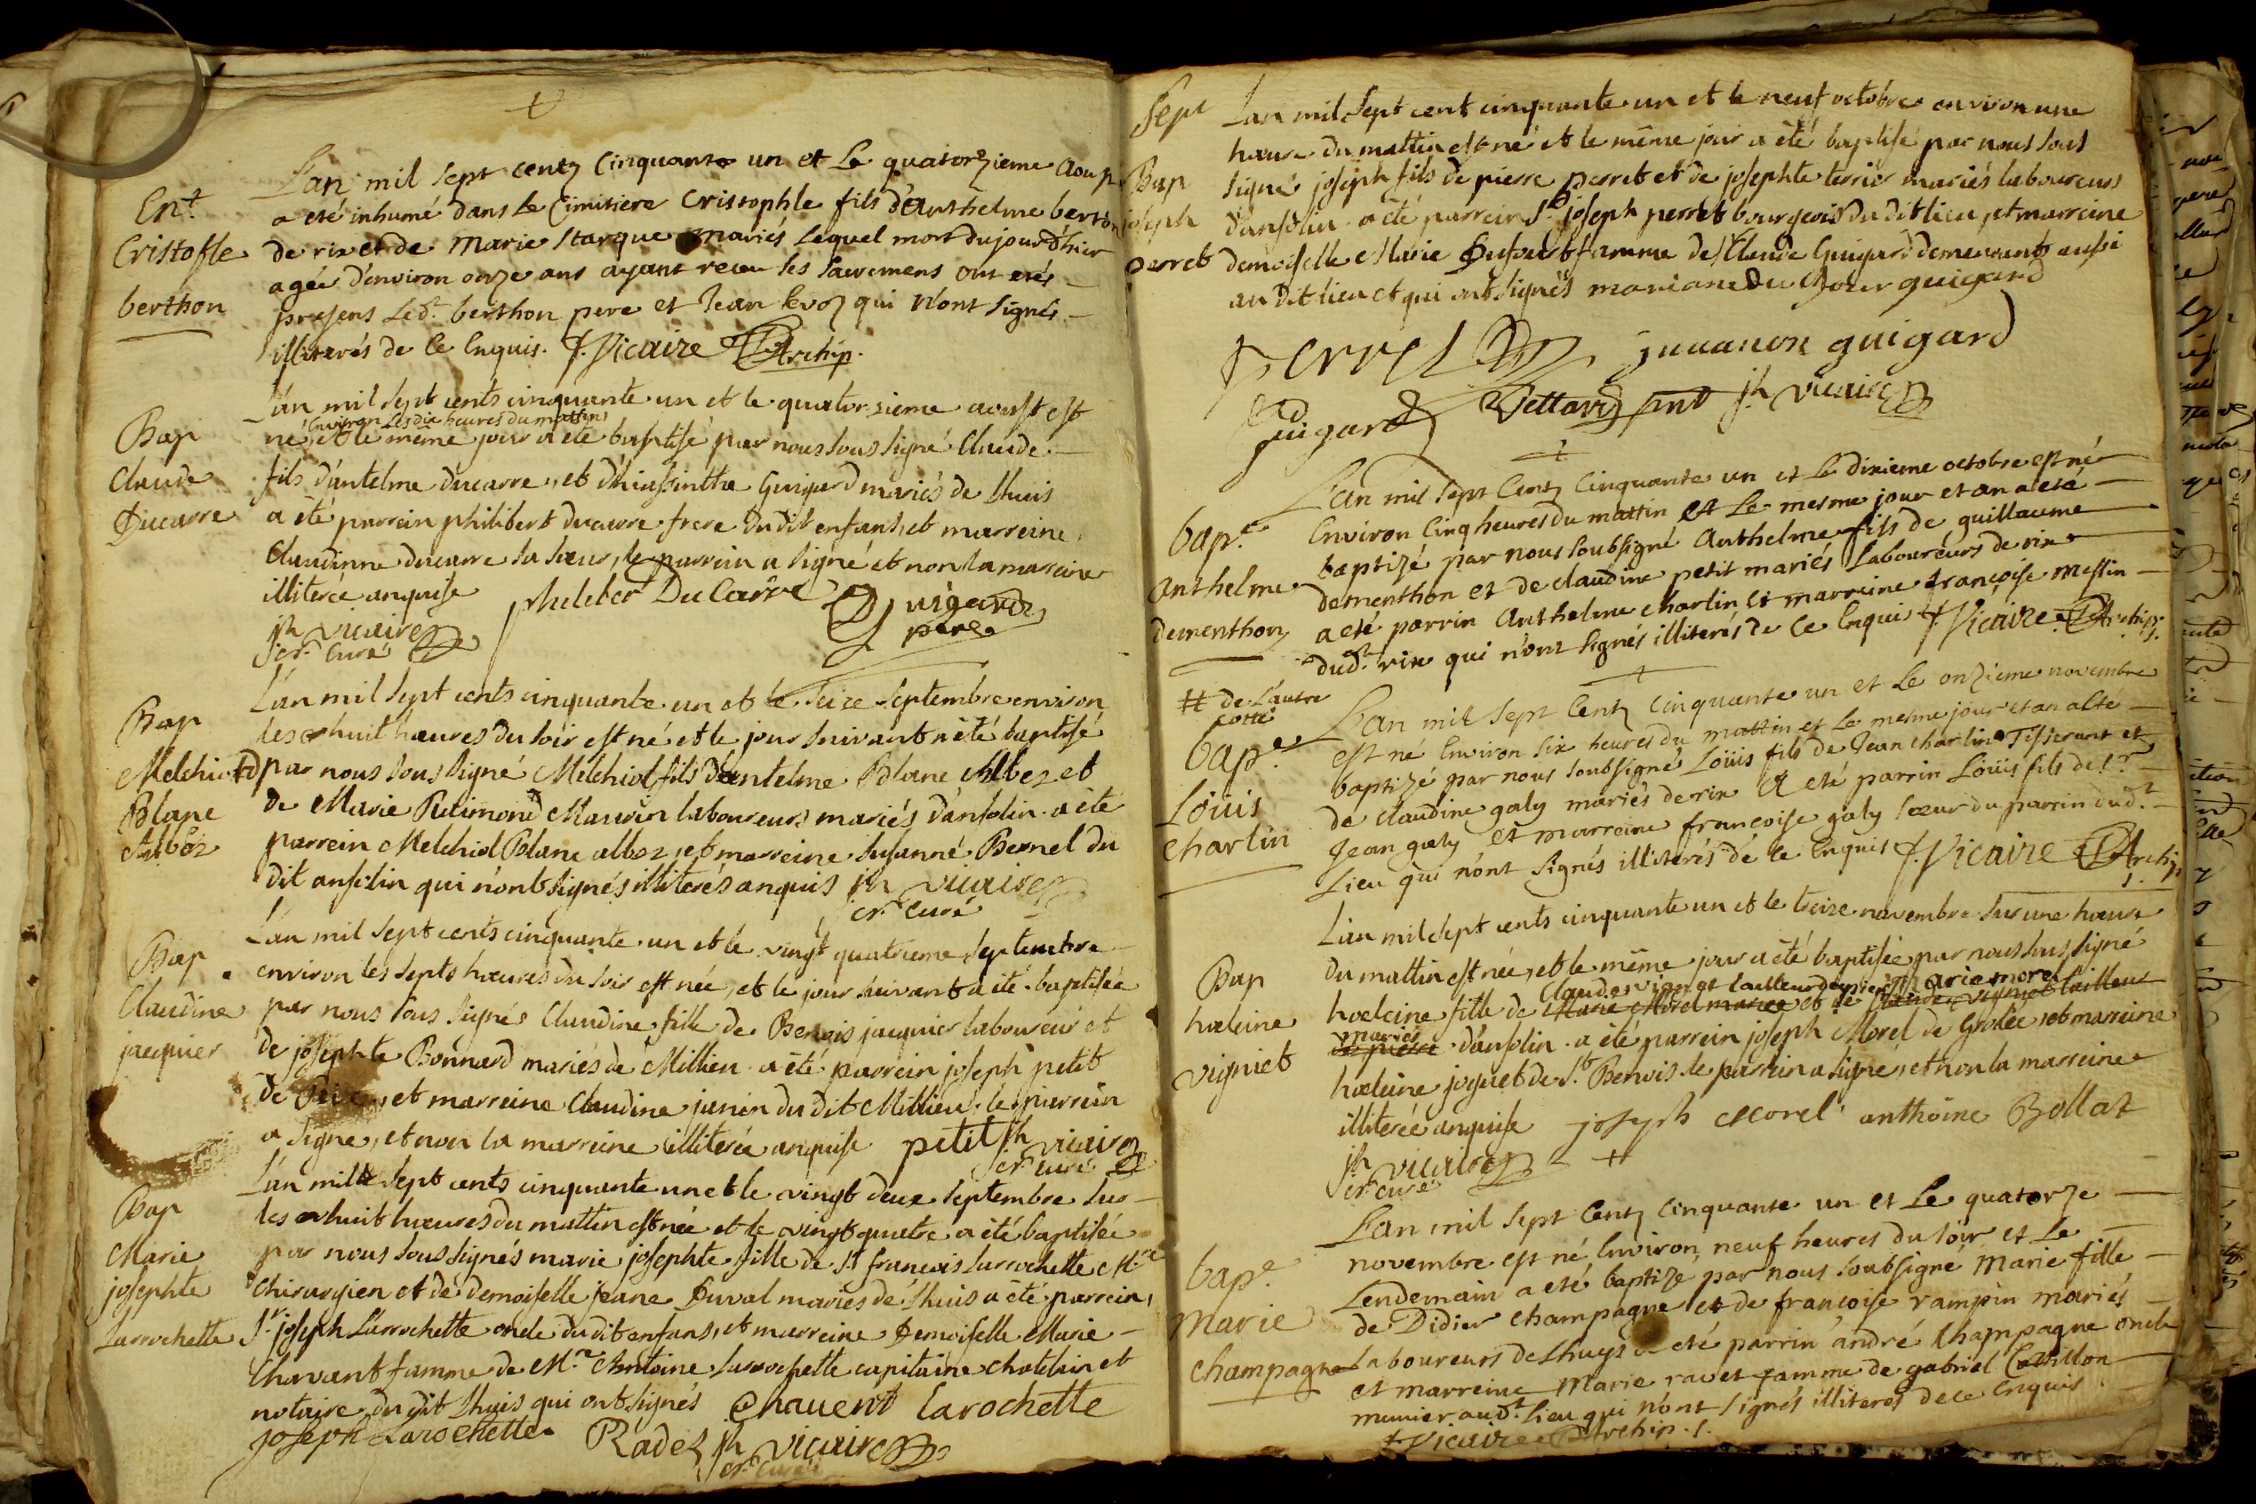 Ent.
Cristofle
berthon
L'an mil sept centz Cinquante un et Le quatorzieme Aoup
a eté inhumé dans Le Cimitiere Cristophle fils d'Anthelme berthon
de rix et de Marie Starque mariés Lequel mort du jour d'hier
agée d'environ onze ans ayant receu ses sacremens ont etés
presens Led.t berthon pere et Jean qui n'ont signés
illiterés de Ce Enquis. f. Vicaire Archip.
Bap
Claude
Ducarre
L'an mil sept cents cinquante un et le quatorzieme aoust est
Environ les dix heures du mattin
né, et le même jour a été baptisé par nous sous signé Claude
fils d'antelme ducarre, et d'hiassinthe Guigard mariés de Lhuis
a été parrein philibert ducarre frere du dit enfant, et marreine
Claudinne ducarre sa sœur, le parrein a signé et non la marreine
illiterée anquise philibert Du Carre Guigard
pere
jh vicaire
cr. curé
Bap
Melchiol
Blanc
Albez
L'an mil sept cents cinquante un et le seize septembre environ
les huit hœures du soir est né et le jour suivant a été baptisé
par nous sous signé Melchiol fils d'antelme Blanc Albez et
de Marie Reimond Maurin laboureurs mariés d'ansolin a été
parrein Melchiol Blanc albez, et marreine Susanne Bernel du
dit ansolin qui n'ont signés illiterés anquis jh vicaire
cr. curé
Bap
Claudine
jacquier
L'an mil sept cents cinquante un et le vingt quatrieme septembre
environ les septs hœures du soir est née, et le jour suivant a été baptisée
par nous sous signé Claudine fille de Benois jacquier laboureur et
de josephte Bonnard mariés de Millieu a été parrein joseph petit
de et marreine Claudine janin du dit Millieu. le pierrein
a signe, et non la marreine illiterée anquise petit jh vicaire
cr. curé
Bap
Marie
josephte
Larrochette
L'an mille sept cents cinquante un et le vingt deux septembre sur
les huit hœures du mattin est née et le vingt quatre a été baptisée
par nous sous signés marie josephte fille de Sr francois Larrochette M.re
chirurgien et de demoiselle jeane Duval mariés de Lhuis a été parrein,
Sr. joseph Larrochette oncle du dit enfans, et marreine Demoiselle Marie
Chavant famme de M.re Antoine Larrochette capitaine chatelain et
notaire du dit Lhuis qui ont signés Chauent Larochette
joseph Larochette Radel jh vicaire
cr. curé
Sept
Bap
joseph
perret
L'an mil sept cent cinquante un et le neuf octobre environ une
hœure du mattin est né et le même jour a été baptisé par nous sous
signé joseph fils de pierre perret et de josephte terrier mariés laboureurs
d'ansolin a été parrein Sr. joseph perret bourgeois du dit lieu, et marreine
demoiselle Marie Dufour famme de Sr Claude Guigard demeurant aussi
au dit lieu et qui ont signés mariane Du four guigard
perret juuanon guigard
guigard Vettard jh vicaire
bap.e
anthelme
dementhon
L'an mil sept Centz Cinquante un et Le dixieme octobre est né
Environ Cinq heures du mattin et Le mesme jour et an a eté
baptizé par nous soubsigné Anthelme fils de guillaume
dementhon et de claudine petit mariés Laboureurs de rix
a eté parrin Anthelme charlin et marreine françoise messin
dud.t rix qui n'ont signés illiterés de Ce Enqui f. Vicaire Archip.
# de L'autre
cotte
bap.e
Loüis
charlin
L'an mil sept Centz Cinquante un et Le onzieme novembre
est né Environ six heures du mattin et Le mesme jour et an a eté
baptizé par nous soubsigné Loüis fils de Jean charlin Tisserant et
de claudine galy mariés de rix A eté parrin Loüis fils de Sr.
Jean galy et marreine francoise galy sœur du parrin dud.t
Lieu qui n'ont signés illiterés de Ce Enquis f. Vicaire Archip.
Bap
hœleine
vigniet
L'an mil sept cents cinquante un et le treize novembre sur une hœure
du mattin est née, et le même jour a été baptisée par nous sous signé
Claude vigniet tailleur de pierre Marie morel
hœleine fille de Marie Morel mariée et de Claude vigniet tailleur
mariés
de pierre d'ansolin a été parrein joseph Morel de Grolée, et marreine
hœleine joguet de St. Benois le parrein a signé, et non la marreine
illiterée anquise joseph Morel anthoine Bollat
jh vicaire
cr. curé
bap.e
Marie
champagne
L'an mil sept Centz Cinquante un et Le quatorze
novembre est né Environ neuf heures du soir et Le
Lendemain a eté baptizé par nous soubsigné Marie fille
de Didier Champagne et de françoise rampin mariés
Laboureurs de Lhuys a eté parrin andré Champagne oncle
et marreine Marie ravet famme de gabriel
munier aud.t Lieu qui n'ont signés illiterés de ce Enquis
f. Vicaire Archip. s.